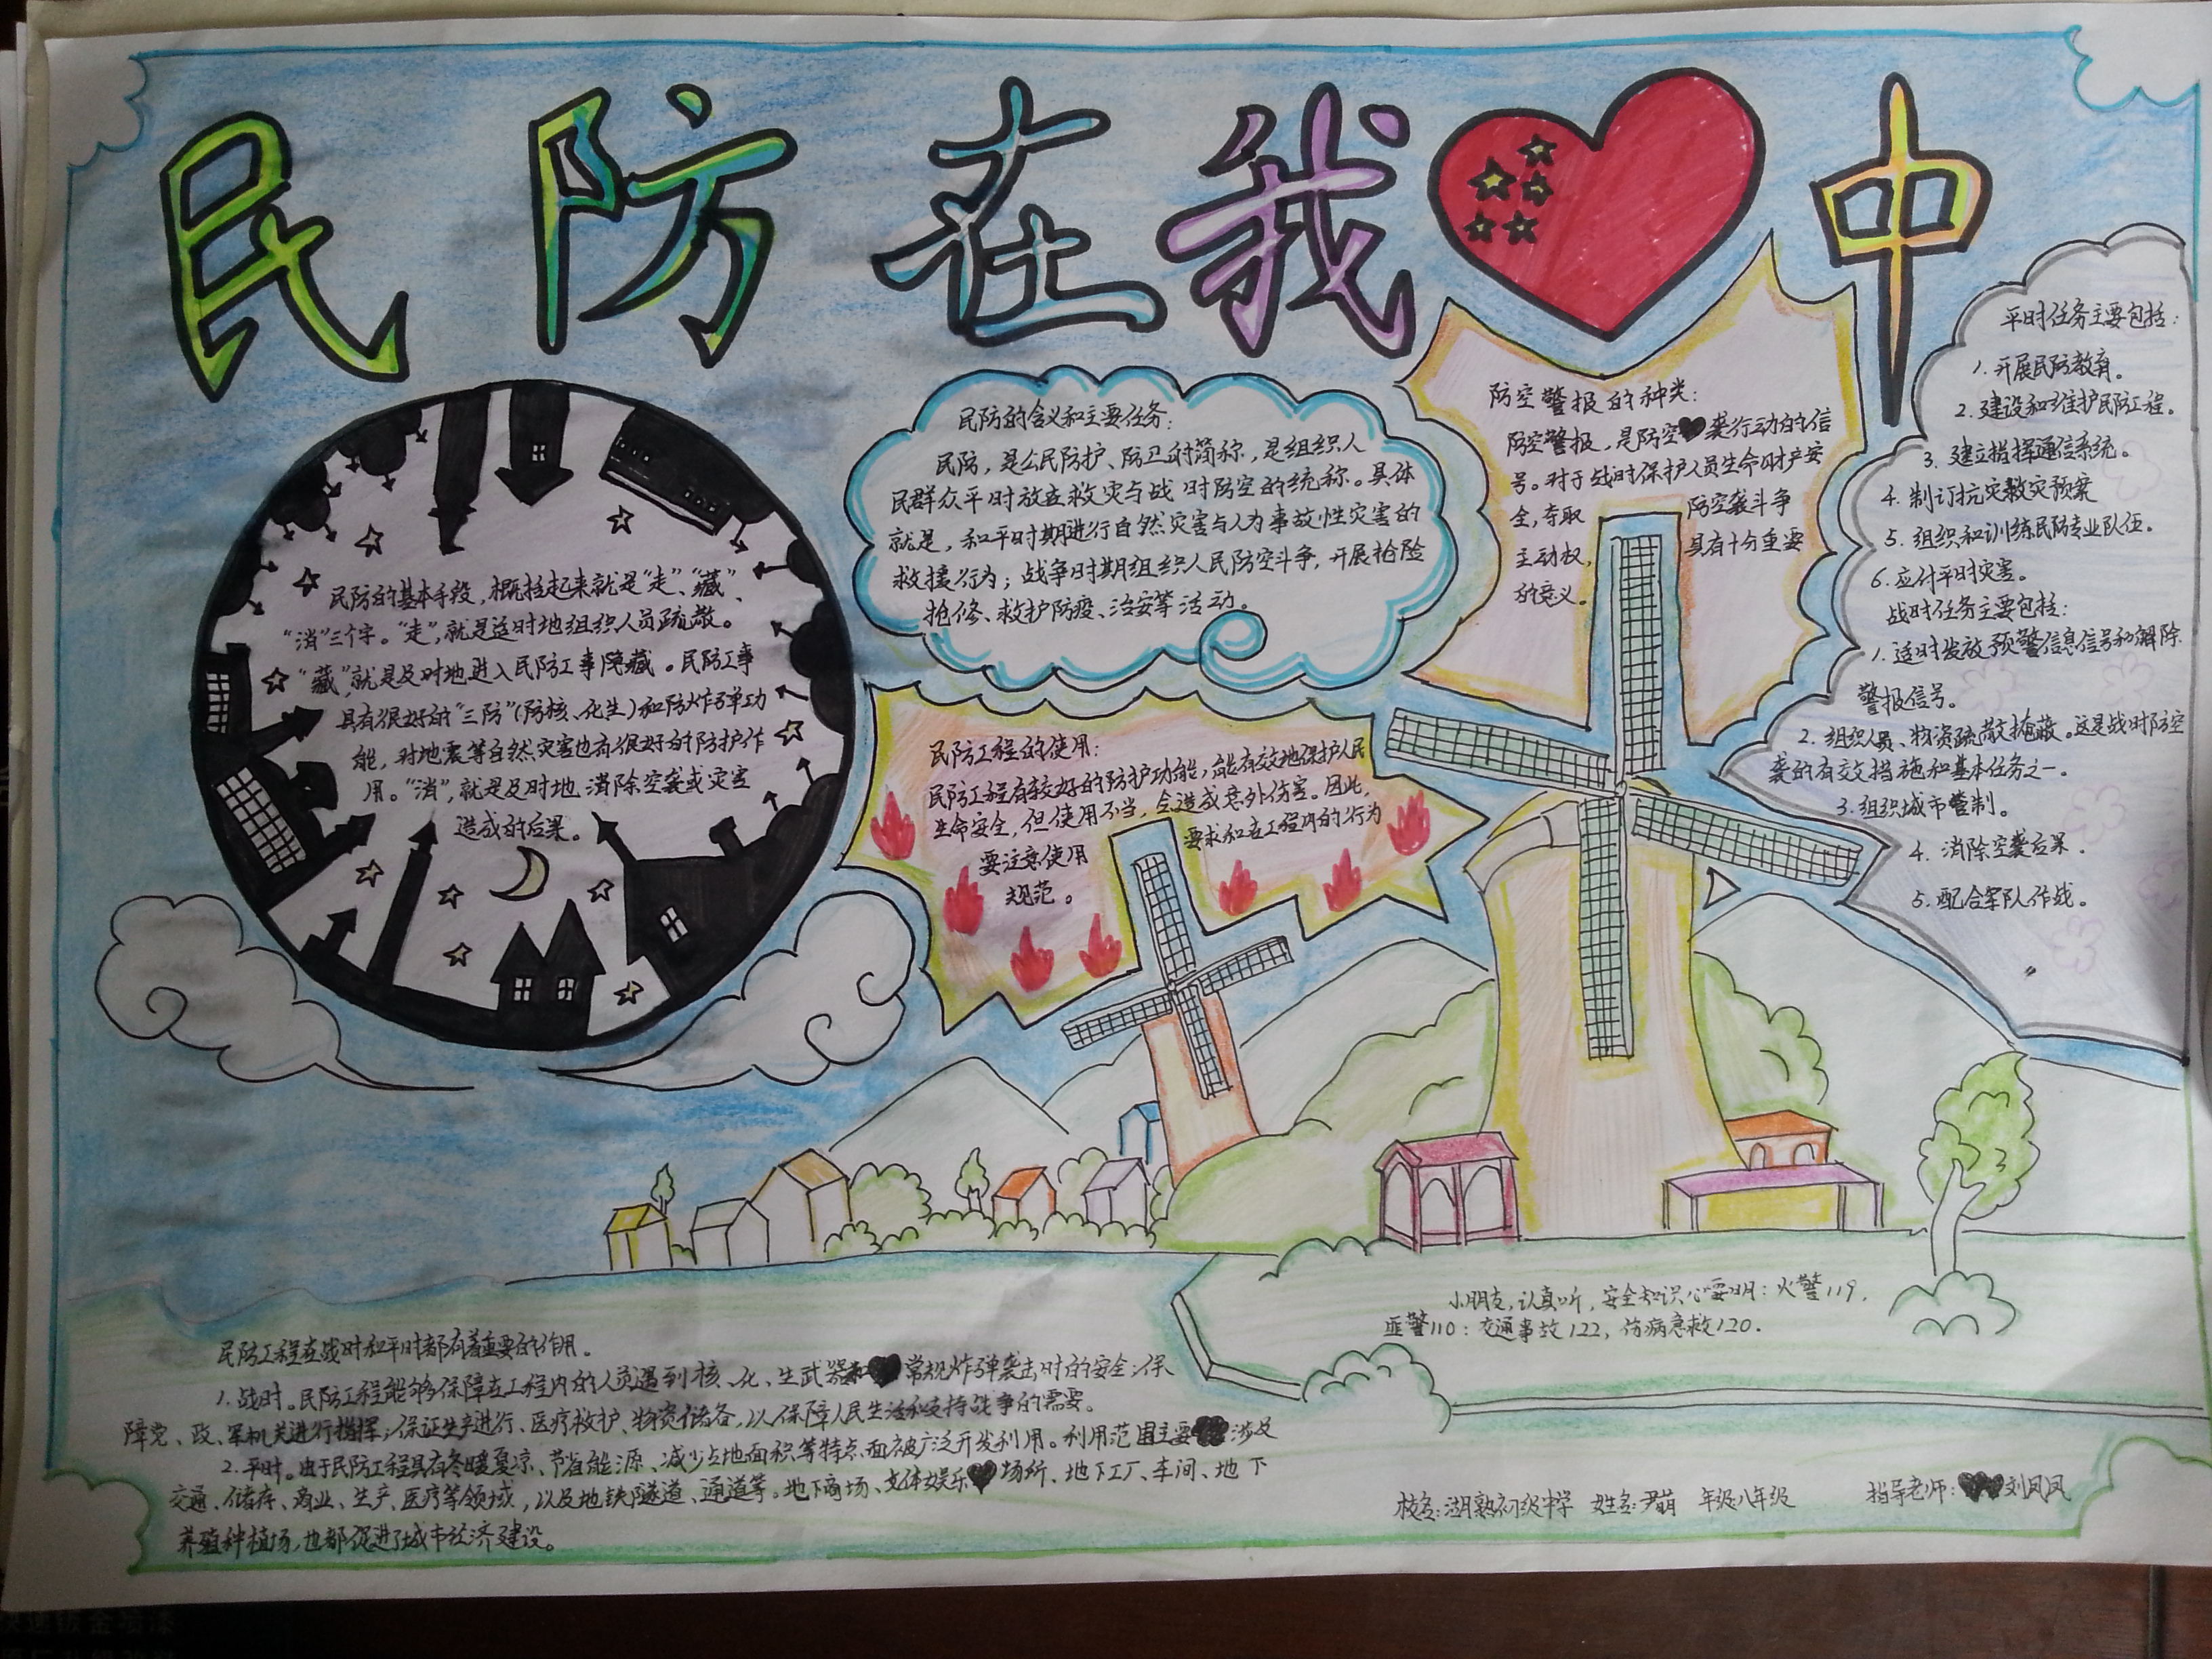 民防在我中
民防的基本手段，概括起来就是“走”、“藏”、
“消”三个字。“走”，就是适时地组织人员疏散。
“藏”，就是及时地进入民防工事隐藏。民防工事
具有很好的“三防”（防核、化生）和防炸弹功
能，对地震等自然灾害也有很好的防护作
用。“消”，就是及时地消除空袭或灾害
造成的后果。
民防的含义和主要任务：
民防，是公民防护、防卫的简称，是组织人
民群众平时放在救灾与战时防空的统称。具体
就是，和平时期进行自然灾害与人为事故性灾害的
救援行为；战争时期组织人民防空斗争，开展抢险
抢修、救护防疫、治安等活动。
防空警报的种类：
防空警报，是防空袭行动的信
号。对于战时保护人员生命财产安
全，夺取
主动权，
防空袭斗争
具有十分重要
的意义。
平时任务主要包括：
1.开展民防教育。
2.建设和维护民防工程。
3.建立指挥通信系统。
4.制订抗灾救灾预案
5.组织和训练民防专业队伍。
6.应付平时灾害。
战时任务主要包括：
1.适时发放预警信息信号和解除
警报信号。
2.组织人员、物资疏散掩蔽。这是战时防空
袭的有效措施和基本任务之一。
3.组织城市管制。
4.消除空袭后果。
5.配合军队作战。
民防工程的使用：
民防工程有较好的防护功能，能有效地保护人民
生命安全，但使用不当，会造成意外伤害。因此，
要注意使用
要求和在工程内的行为
规范。
小朋友，认真听，安全知识心要明：火警119，
匪警110：交通事故122，伤病急救120.
民防工程在战时和平时都有着重要的作用。
1.战时。民防工程能够保障在工程内的人员遇到核、化、生武器和常规炸弹袭击时的安全；保
障党、政、军机关进行指挥；保证生产进行、医疗救护、物资储备，以保障人民生活和支持战争的需要。
2.平时。由于民防工程具有冬暖夏凉、节省能源、减少占地面积等特点而被广泛开发利用。利用范围主要涉及
交通、储存、商业、生产、医疗等领域，以及地铁隧道、通道等。地下商场、文体娱乐场所、地下工厂、车间、地下
养殖种植场，也都促进了城市经济建设。
校名：湖熟初级中学 姓名：尹萌 年级八年级 指导老师：刘凤凤